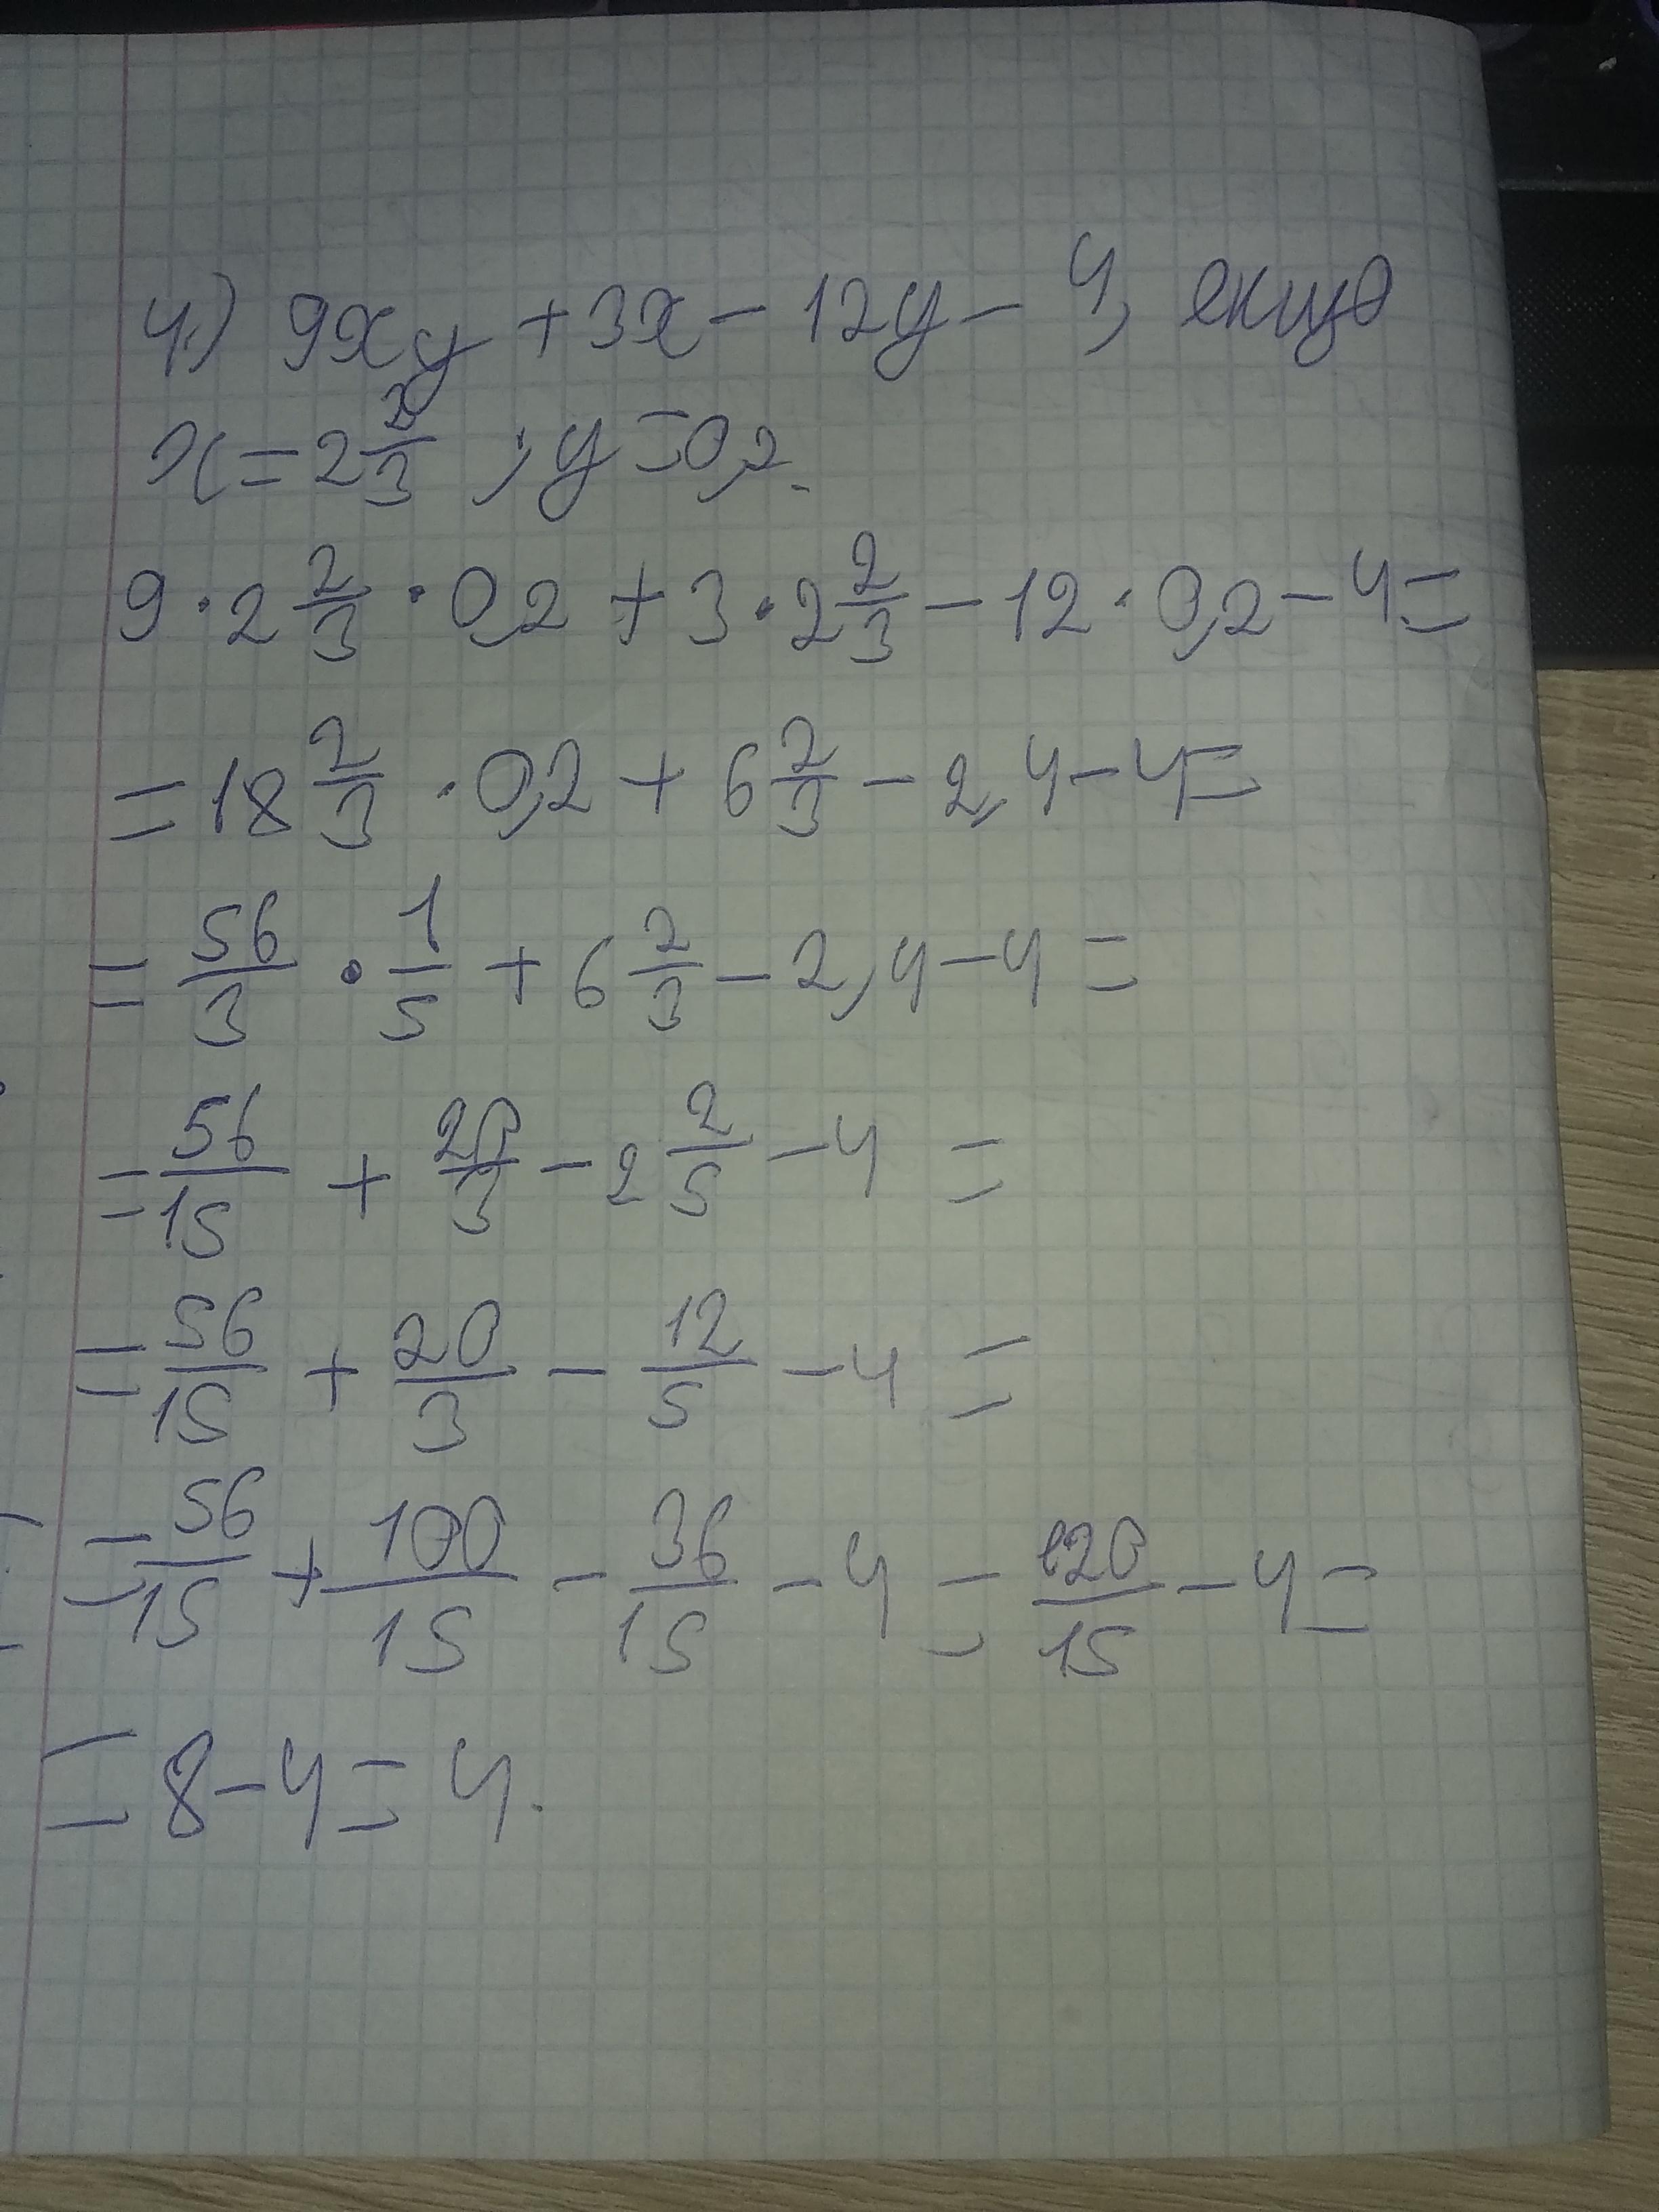 4.) 9xy + 3x - 12y - 4, якщо
x = 2 2/3 ; y = 0,2.
9 · 2 2/3 · 0,2 + 3 · 2 2/3 - 12 · 0,2 - 4 =
= 18 2/3 · 0,2 + 6 2/3 - 2,4 - 4 =
= 56/3 · 1/5 + 6 2/3 - 2,4 - 4 =
= 56/15 + 20/3 - 2 2/5 - 4 =
= 56/15 + 20/3 - 12/5 - 4 =
= 56/15 + 100/15 - 36/15 - 4 = 120/15 - 4 =
= 8 - 4 = 4.